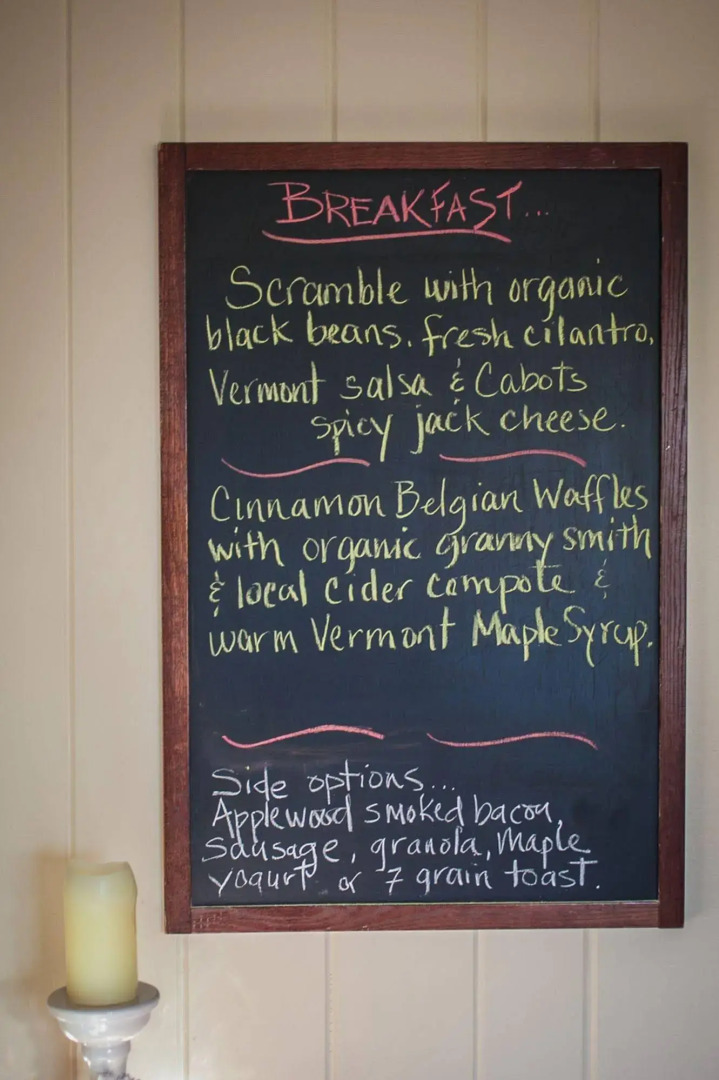 BREAKFAST...
Scramble with organic
black beans. fresh cilantro,
Vermont salsa & Cabots
spicy jack cheese.
Cinnamon Belgian Waffles
with organic granny smith
& local cider compote &
warm Vermont Maple Syrup.
Side options...
Applewood smoked bacon,
sausage, granola, Maple
yogurt or 7 grain toast.